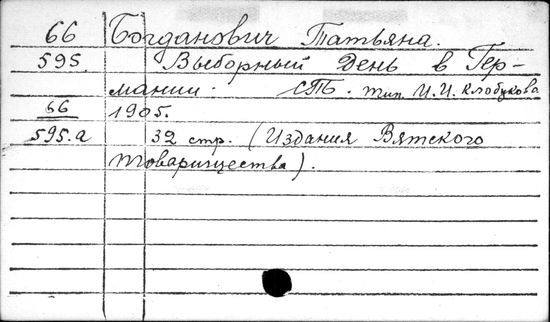 66 Богданович Татьяна.
595. Выборный День в Гер-
мании. СПБ. тип. И.И. Клобукова
66 1905.
595.а 32 стр. (Издания Вятского
товарищества).